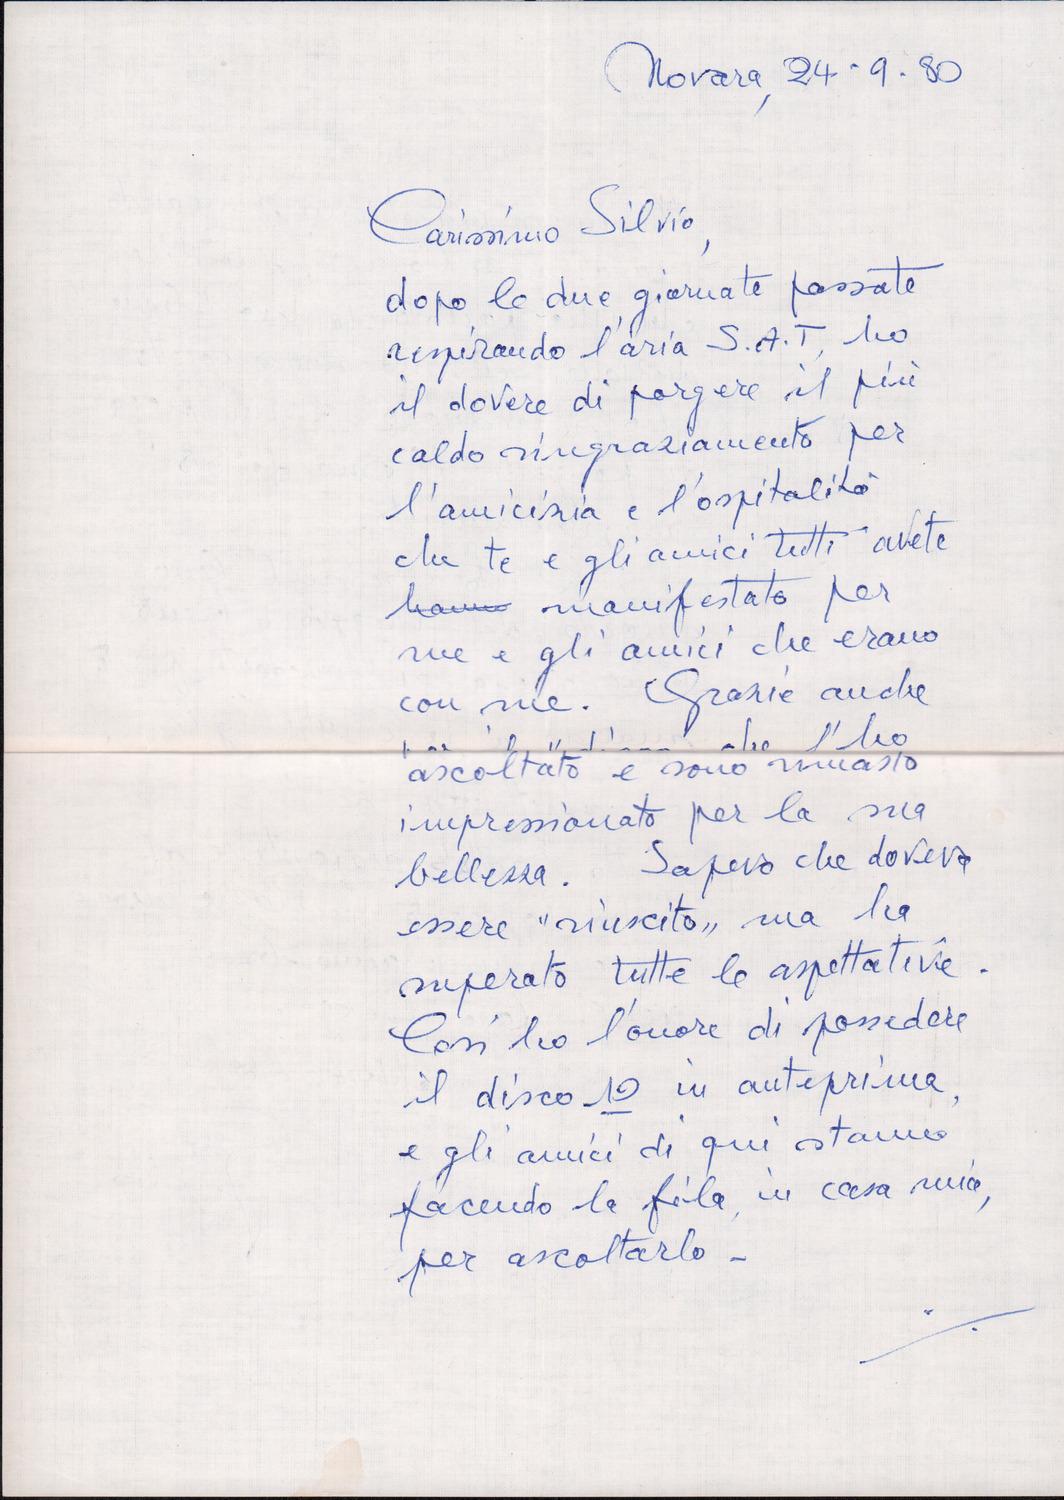 Novara, 24-9-80
Carissimo Silvio,
dopo le due giornate passate
respirando l'aria S.A.T, ho
il dovere di porgere il più
caldo ringraziamento per
l'amicizia e l'ospitalità
che te e gli amici tutti avete
hanno manifestato per
me e gli amici che erano
con me. Grazie anche
che l'ho
ascoltato e sono rimasto
impressionato per la sua
bellezza. Sapevo che doveva
essere "riuscito" ma ha
superato tutte le aspettative.
Così ho l'onore di possedere
il disco in anteprima,
e gli amici di qui stanno
facendo la fila, in casa mia,
per ascoltarlo -